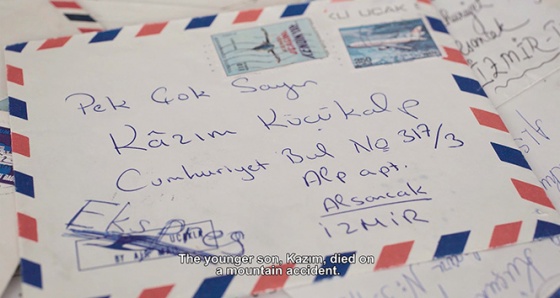 Pek Çok Sayın
Kâzım Küçükalp
Cumhuriyet Bul No 317/3
Alp apt.
Alsancak
İZMİR
Ekspres
UÇAKLA
BY AIR MAIL
İZMİR
The younger son, Kazım, died on
a mountain accident.